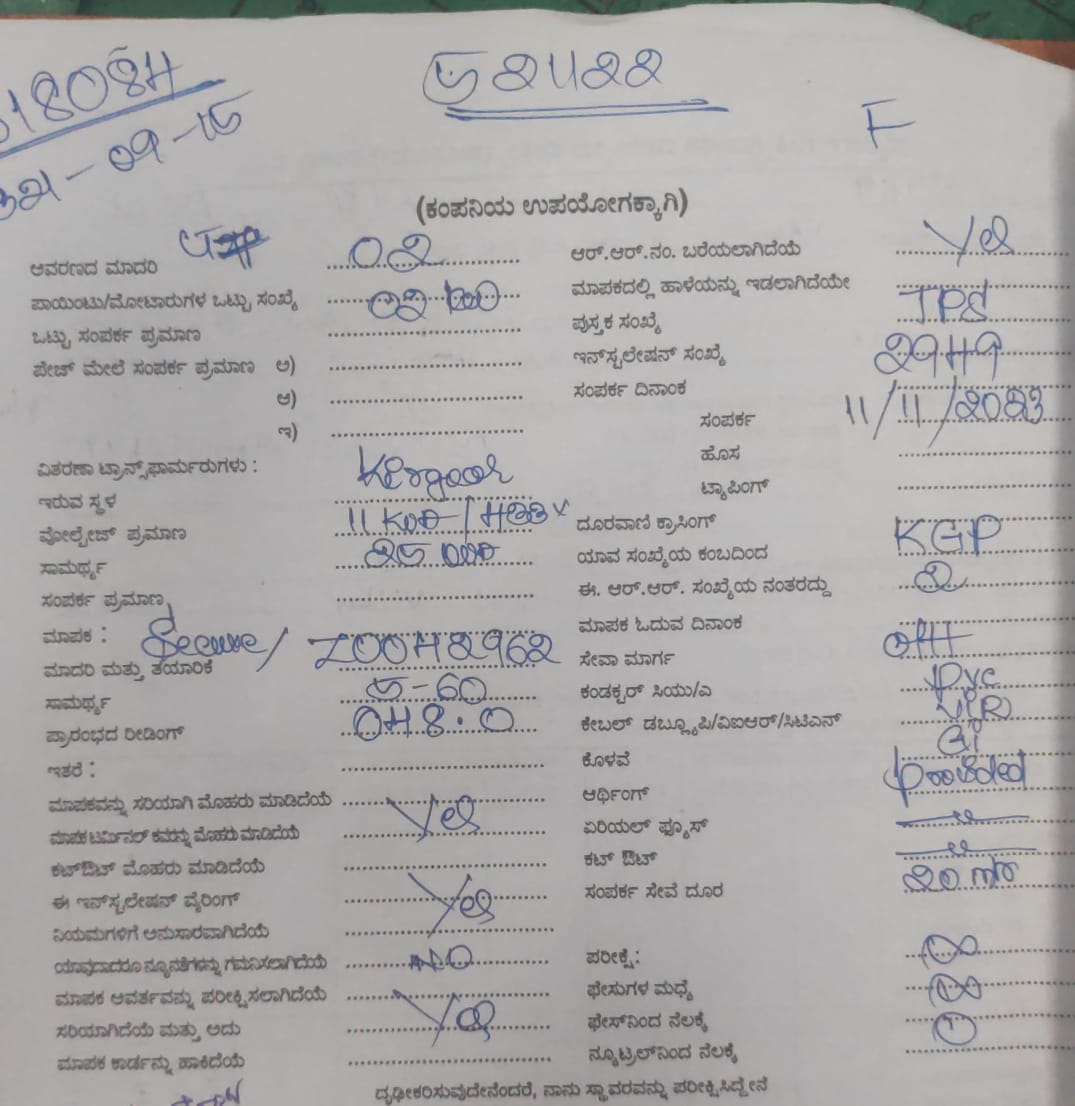 F
(ಕಂಪನಿಯ ಉಪಯೋಗಕ್ಕಾಗಿ)
ಆವರಣದ ಮಾದರಿ 02
ಪಾಯಿಂಟು/ಮೋಟಾರುಗಳ ಒಟ್ಟು ಸಂಖ್ಯೆ 02
ಒಟ್ಟು ಸಂಪರ್ಕ ಪ್ರಮಾಣ
ಪೇಚ್ ಮೇಲೆ ಸಂಪರ್ಕ ಪ್ರಮಾಣ ಅ)
ಆ)
ಇ)
ವಿತರಣಾ ಟ್ರಾನ್ಸ್‌ಫಾರ್ಮರುಗಳು :
ಇರುವ ಸ್ಥಳ
ವೋಲ್ಟೇಜ್ ಪ್ರಮಾಣ
ಸಾಮರ್ಥ್ಯ
ಸಂಪರ್ಕ ಪ್ರಮಾಣ
ಮಾಪಕ : Secure/
ಮಾದರಿ ಮತ್ತು ತಯಾರಿಕೆ
ಸಾಮರ್ಥ್ಯ 5-60
ಪ್ರಾರಂಭದ ರೀಡಿಂಗ್ 048.0
ಇತರೆ :
ಮಾಪಕವನ್ನು ಸರಿಯಾಗಿ ಮೊಹರು ಮಾಡಿದೆಯೆ Yes
ಮಾಪಕ ಟರ್ಮಿನಲ್ ಕವರನ್ನು ಮೊಹರು ಮಾಡಿದೆಯೆ
ಕಟ್‌ಔಟ್ ಮೊಹರು ಮಾಡಿದೆಯೆ
ಈ ಇನ್‌ಸ್ಟಲೇಷನ್ ವೈರಿಂಗ್ Yes
ನಿಯಮಗಳಿಗೆ ಅನುಸಾರವಾಗಿದೆಯೆ
ಯಾವುದಾದರೂ ನ್ಯೂನತೆಗಳನ್ನು ಗಮನಿಸಲಾಗಿದೆಯೆ NO
ಮಾಪಕ ಆವರ್ತವನ್ನು ಪರೀಕ್ಷಿಸಲಾಗಿದೆಯೆ
ಸರಿಯಾಗಿದೆಯೆ ಮತ್ತು ಅದು Yes
ಮಾಪಕ ಕಾರ್ಡನ್ನು ಹಾಕಿದೆಯೆ
ಆರ್.ಆರ್.ನಂ. ಬರೆಯಲಾಗಿದೆಯೆ Yes
ಮಾಪಕದಲ್ಲಿ ಹಾಳೆಯನ್ನು ಇಡಲಾಗಿದೆಯೇ
ಪುಸ್ತಕ ಸಂಖ್ಯೆ TPS
ಇನ್‌ಸ್ಟಲೇಷನ್ ಸಂಖ್ಯೆ 2949
ಸಂಪರ್ಕ ದಿನಾಂಕ
ಸಂಪರ್ಕ 11/11/2023
ಹೊಸ
ಟ್ಯಾಪಿಂಗ್
ದೂರವಾಣಿ ಕ್ರಾಸಿಂಗ್
ಯಾವ ಸಂಖ್ಯೆಯ ಕಂಬದಿಂದ KGP
ಈ. ಆರ್.ಆರ್. ಸಂಖ್ಯೆಯ ನಂತರದ್ದು 2
ಮಾಪಕ ಓದುವ ದಿನಾಂಕ
ಸೇವಾ ಮಾರ್ಗ OH
ಕಂಡಕ್ಟರ್ ಸಿಯು/ಎ pvc
ಕೇಬಲ್ ಡಬ್ಲ್ಯೂಪಿ/ವಿಐಆರ್/ಸಿಟಿಎಸ್ VIR
ಕೊಳವೆ Gi
ಆರ್ಥಿಂಗ್ provided
ಏರಿಯಲ್ ಫ್ಯೂಸ್
ಕಟ್ ಔಟ್
ಸಂಪರ್ಕ ಸೇವೆ ದೂರ 20 mtr
ಪರೀಕ್ಷೆ:
ಫೇಸುಗಳ ಮಧ್ಯೆ
ಫೇಸ್‌ನಿಂದ ನೆಲಕ್ಕೆ
ನ್ಯೂಟ್ರಲ್‌ನಿಂದ ನೆಲಕ್ಕೆ
ದೃಢೀಕರಿಸುವುದೇನೆಂದರೆ, ನಾನು ಸ್ಥಾವರವನ್ನು ಪರೀಕ್ಷಿಸಿದ್ದೇನೆ